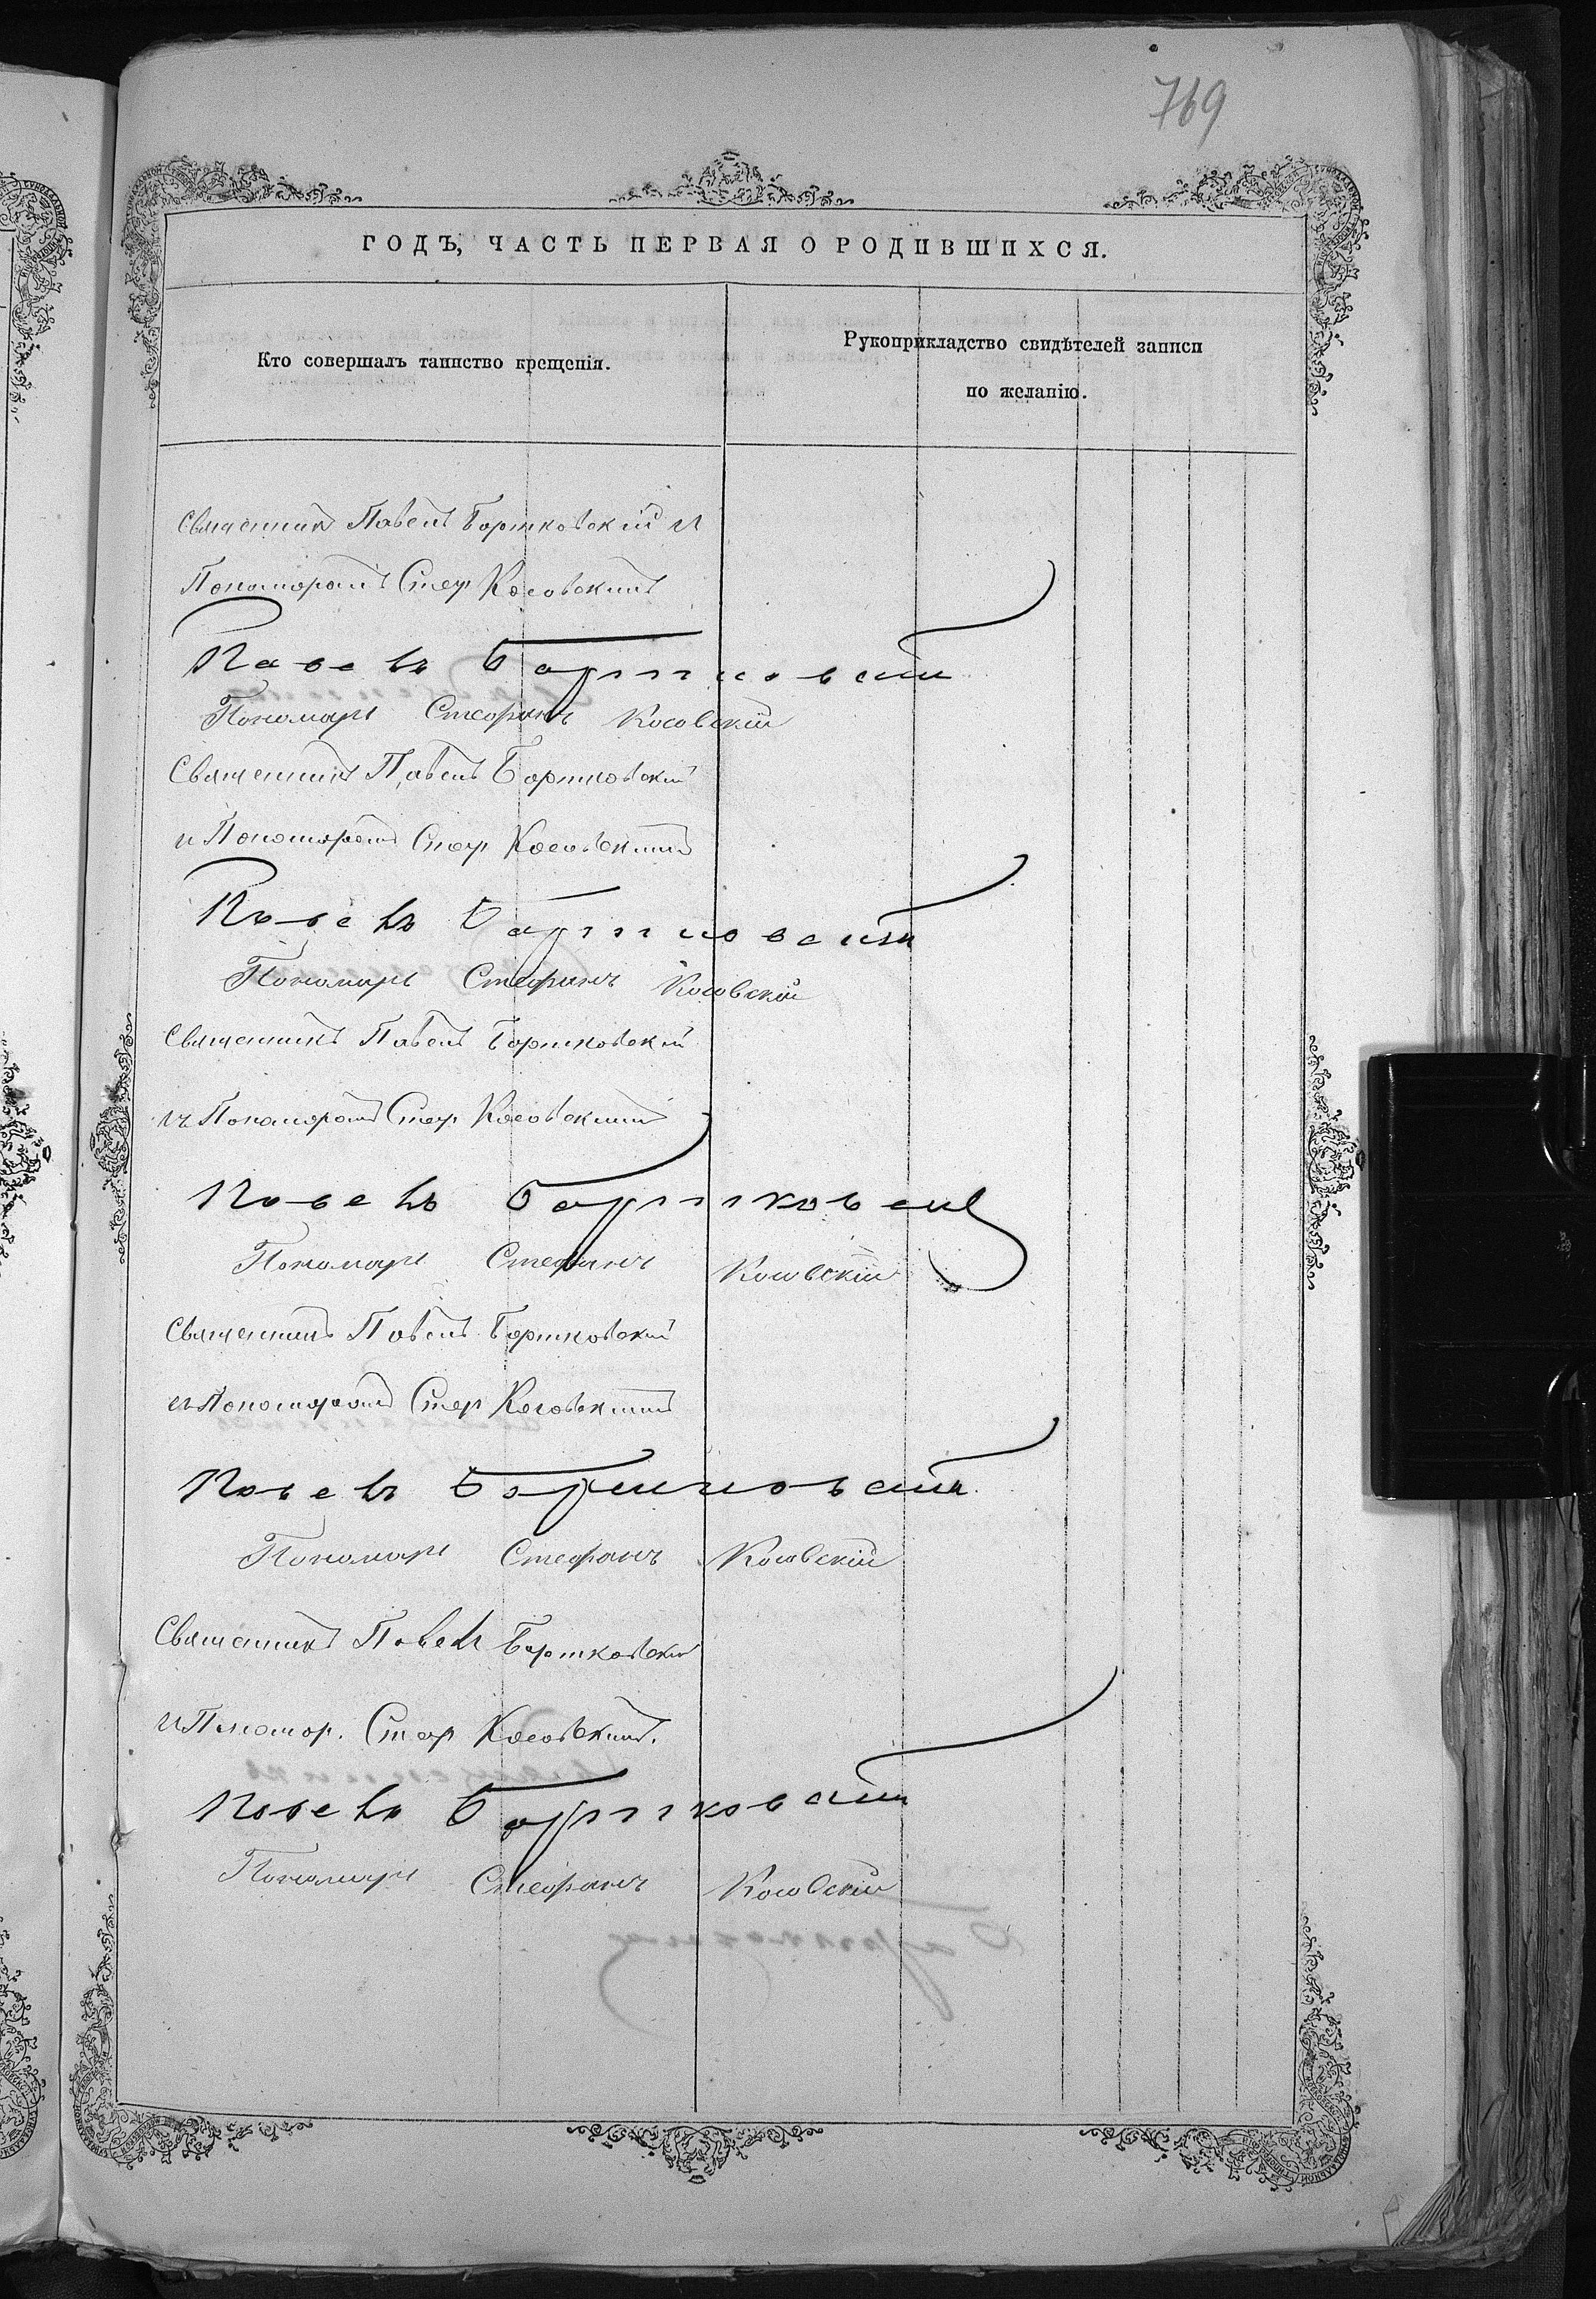 769
ГОДЪ, ЧАСТЬ ПЕРВАЯ О РОДИВШИХСЯ.
Кто совершалъ таинство крещенія.
Рукоприкладство свидѣтелей записи
по желанію.
Священникъ Павелъ Бортковскій и
Пономаромъ Стеф Косовскимъ
Павелъ Бортковскій
Пономарь Стефанъ Косовскій
Священникъ Павелъ Бортковскій
и Пономаромъ Стеф Косовскимъ
Павелъ Бортковскій
Пономарь Стефанъ Косовскій
Священникъ Павелъ Бортковскій
съ Пономаромъ Стеф Косовскимъ
Павелъ Бортковскій
Пономарь Стефанъ Косовскій
Священникъ Павелъ Бортковскій
съ Пономаромъ Стеф Косовскимъ
Павелъ Бортковскій
Пономарь Стефанъ Косовскій
Священникъ Павелъ Бортковскій
и Пономар. Стеф Косовскимъ.
Павелъ Бортковскій
Пономарь Стефанъ Косовскій